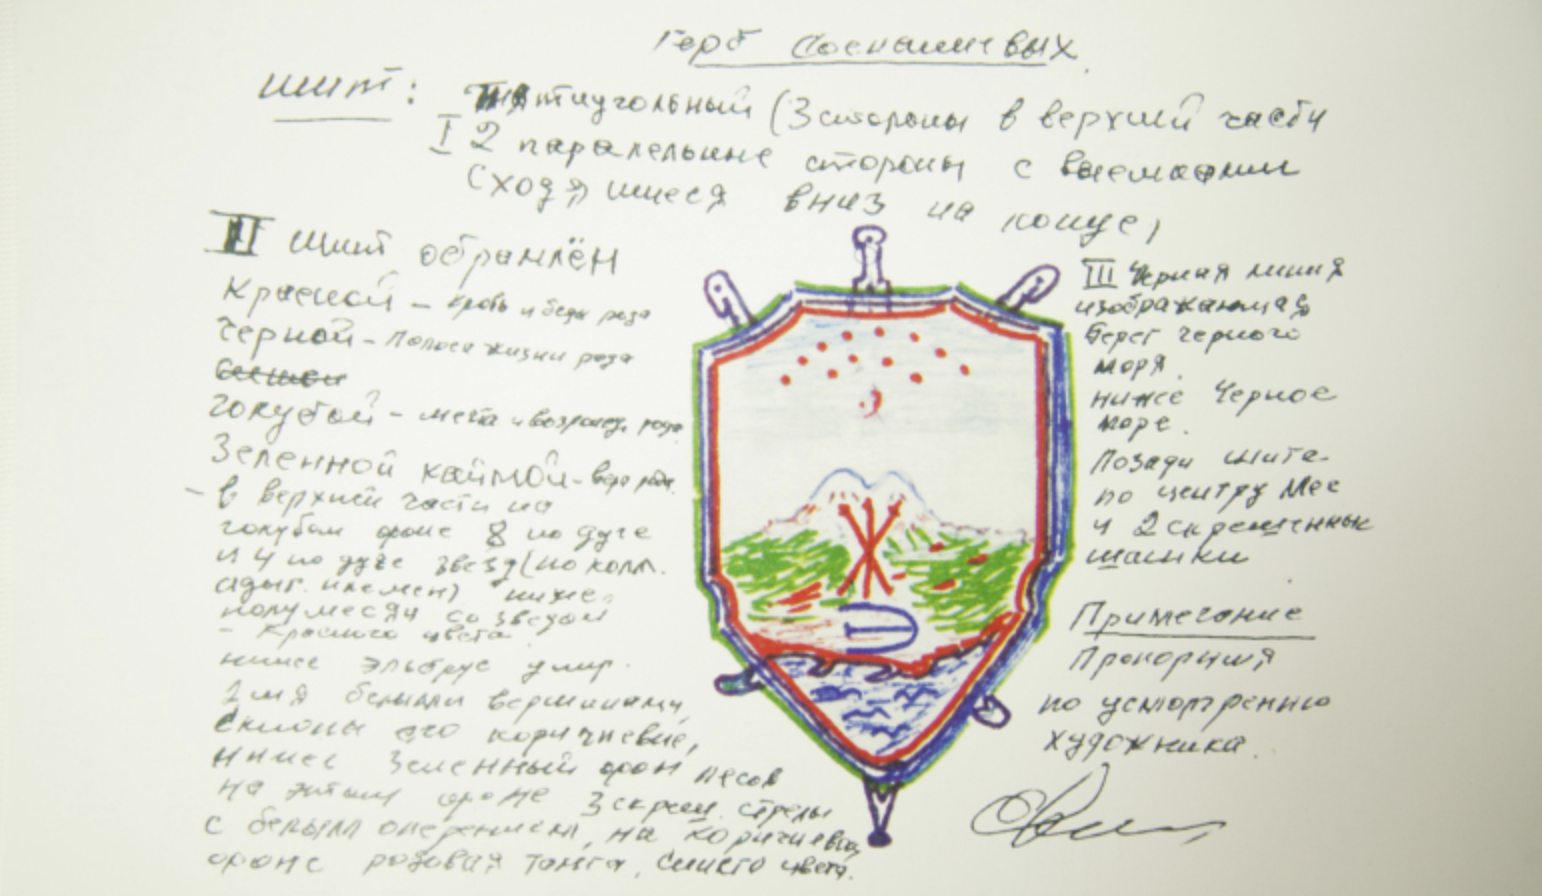 Герб
Щит: Пятиугольный (3 стороны в верхней части
I 2 паралельные стороны с выемками
сходящиеся вниз на конус,
II Щит обрамлён
Красной – кровь и беды рода
Черной – Полоса жизни рода
голубой – мечта и возрожд. рода
Зеленной каймой – вера рода.
– в верхней части на
голубом фоне 8 по дуге
и 4 по дуге звезд (по колл.
адыг. племен) ниже
полумесяц со звездой
– Красного цвета
ниже Эльбрус
2мя белыми вершинами,
склоны его коричневые,
ниже Зеленный фон лесов
на этом фоне 3 скрещ. стрелы
с белым оперением, на коричневом
фоне родовая тамга, синего цвета.
III Черная линия
изображающая
берег Черного
моря.
ниже Черное
море.
Позади щита
по центру Меч
и 2 скрещенные
шашки
Примечание
Пропорция
по усмотрению
художника.